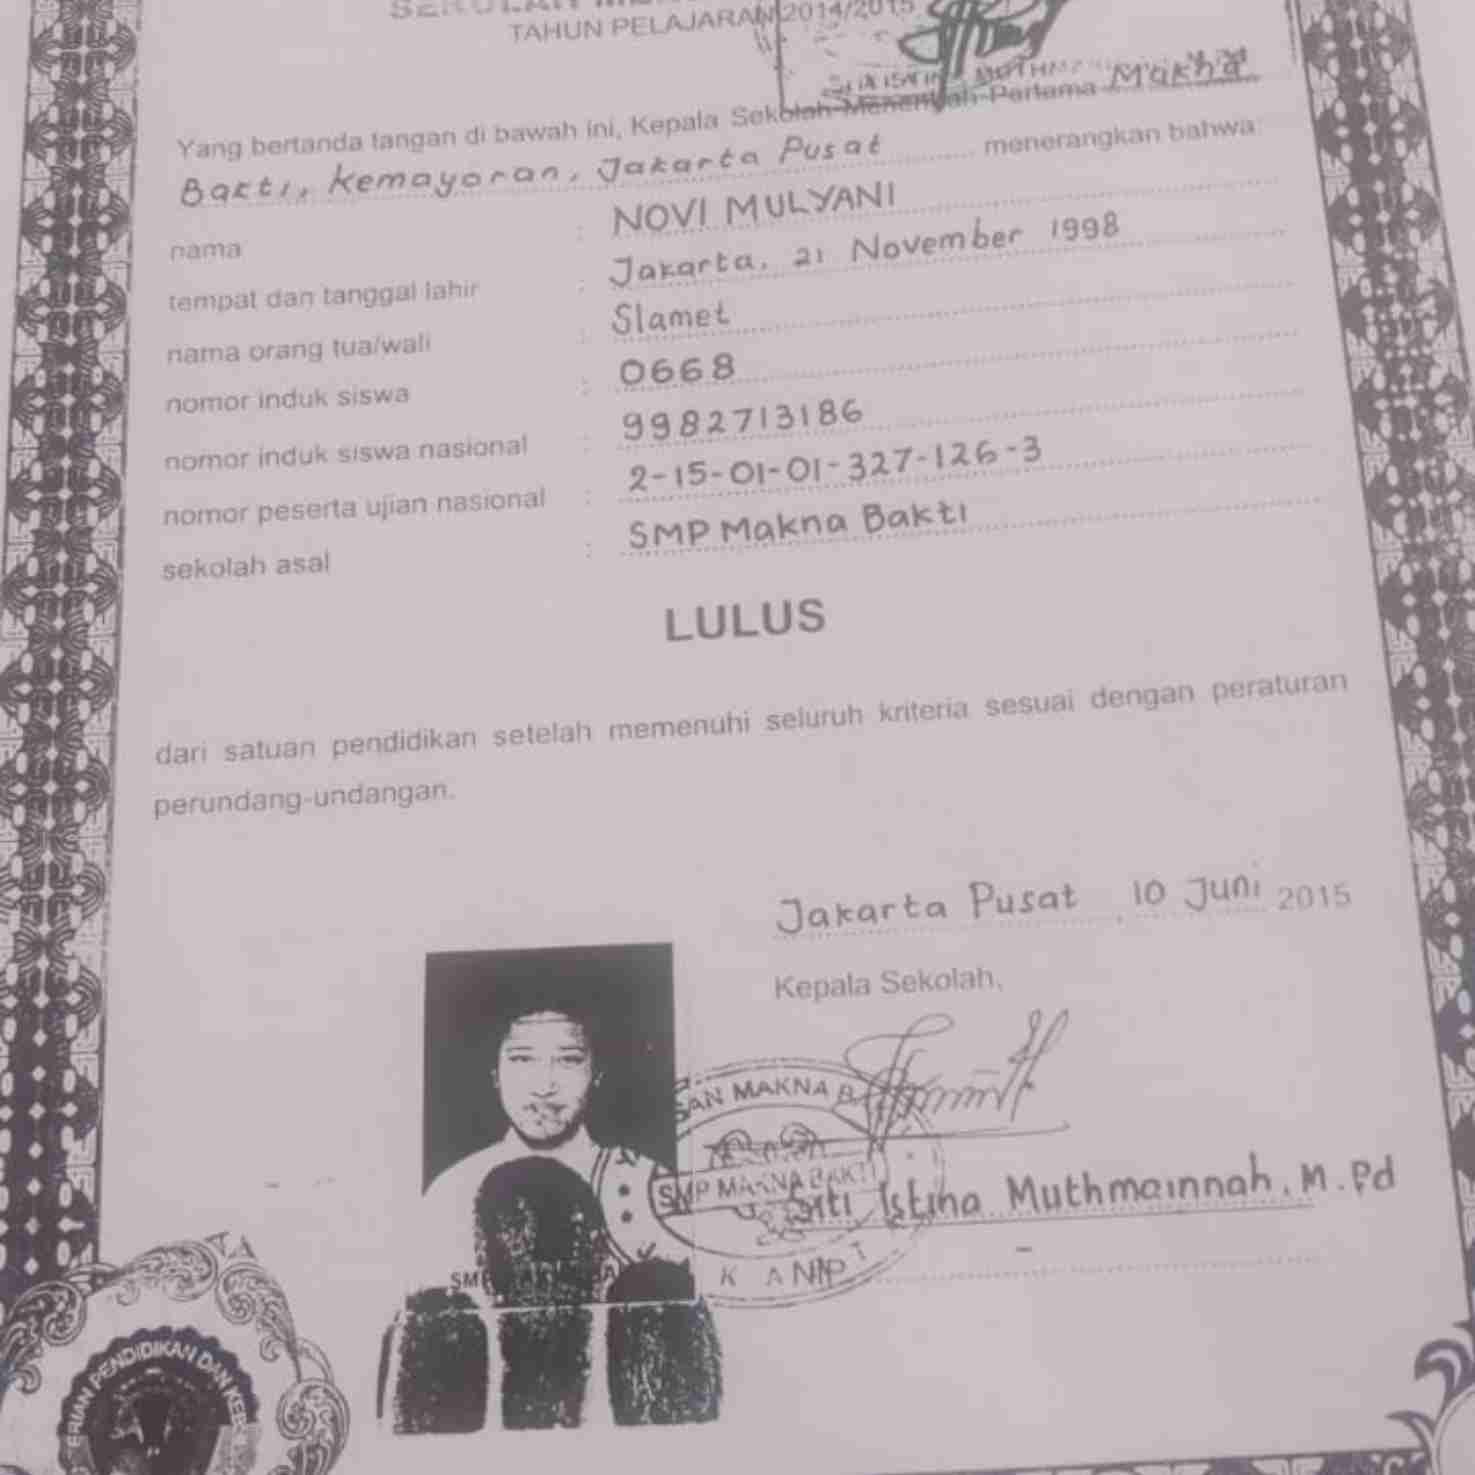 TAHUN PELAJARAN 2014/2015
Yang bertanda tangan di bawah ini, Kepala Sekolah Menengah Pertama Makna
Bakti, Kemayoran, Jakarta Pusat menerangkan bahwa:
nama : NOVI MULYANI
tempat dan tanggal lahir : Jakarta, 21 November 1998
nama orang tua/wali : Slamet
nomor induk siswa : 0668
nomor induk siswa nasional : 9982713186
nomor peserta ujian nasional : 2-15-01-01-327-126-3
sekolah asal : SMP Makna Bakti
LULUS
dari satuan pendidikan setelah memenuhi seluruh kriteria sesuai dengan peraturan
perundang-undangan.
Jakarta Pusat, 10 Juni 2015
Kepala Sekolah,
SAN MAKNA BA
SMP MAKNA BAKTI
Siti Istina Muthmainnah, M.Pd
NIP -
SMP
ERIAN PENDIDIKAN DAN KEB